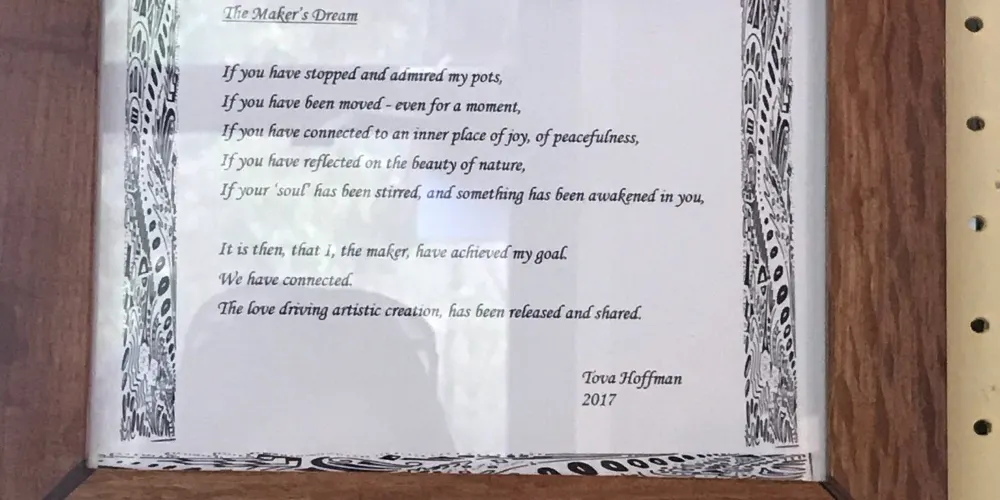 The Maker's Dream
If you have stopped and admired my pots,
If you have been moved - even for a moment,
If you have connected to an inner place of joy, of peacefulness,
If you have reflected on the beauty of nature,
If your 'soul' has been stirred, and something has been awakened in you,
It is then, that I, the maker, have achieved my goal.
We have connected.
The love driving artistic creation, has been released and shared.
Tova Hoffman
2017